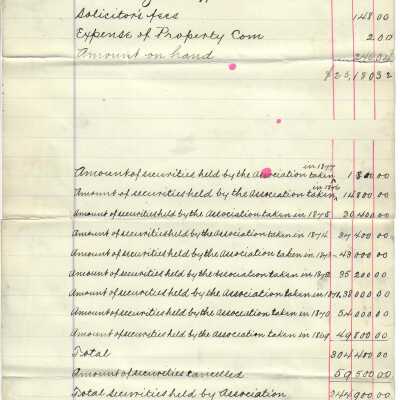 Solicitor's fees 148 00
Expense of Property Com 2 00
Amount on hand
$ 25,180 32
in 1877
Amount of securities held by the Association taken 1 800 00
in 1876
Amount of securities held by the Association taken 14 800 00
Amount of securities held by the Association taken in 1875 30 400 00
Amount of securities held by the Association taken in 1874 37 400 00
Amount of securities held by the Association taken in 1873 43 000 00
Amount of securities held by the Association taken in 1872 35 200 00
Amount of securities held by the Association taken in 1871 38 000 00
Amount of securities held by the Association taken in 1870 54 000 00
Amount of securities held by the Association taken in 1869 49 800 00
Total 304 400 00
Amount of securities cancelled 59 500 00
Total securities held by Association 244 900 00